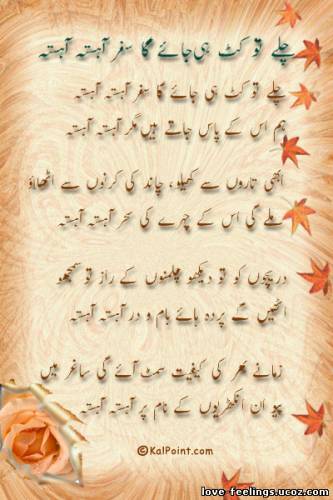 چلے تو کٹ ہی جائے گا سفر آہستہ آہستہ
چلے تو کٹ ہی جائے گا سفر آہستہ آہستہ
ہم اس کے پاس جاتے ہیں مگر آہستہ آہستہ
ابھی تاروں سے کھیلو، چاند کی کرنوں سے اٹھلاؤ
ملے گی اس کے چہرے کی سحر آہستہ آہستہ
دریچوں کو تو دیکھو چلمنوں کے راز تو سمجھو
اٹھیں گے پردہ ہائے بام و در آہستہ آہستہ
زمانے بھر کی کیفیت سمٹ آئے گی ساغر میں
پیو ان انکھڑیوں کے نام پر آہستہ آہستہ
©KalPoint.com
love-feelings.ucoz.com